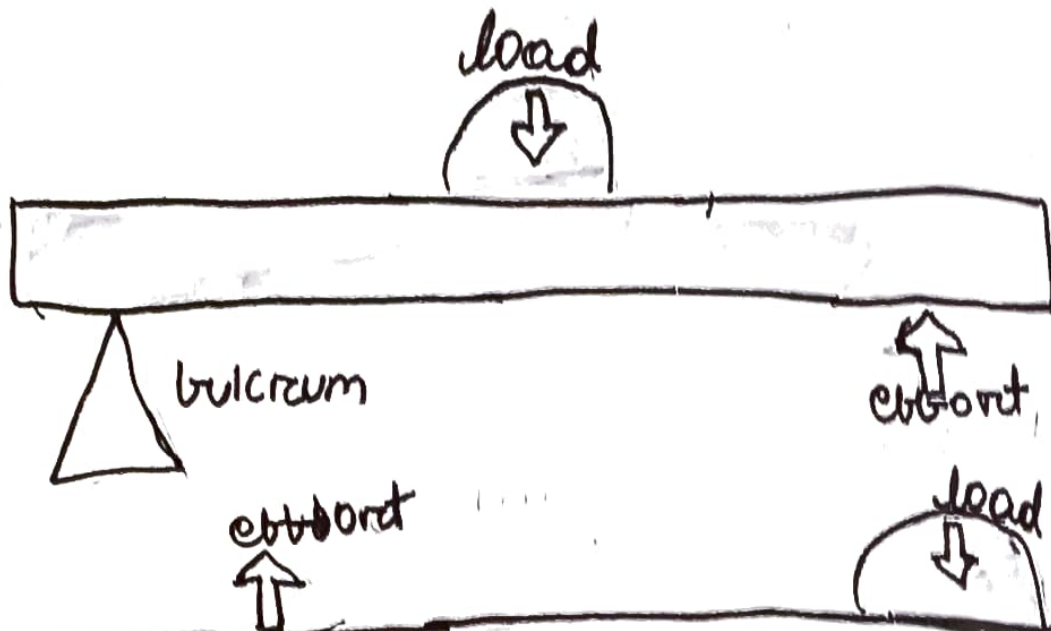 load
fulcrum
effort
effort
load